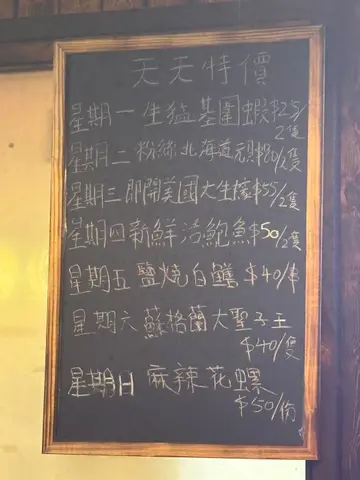 天天特價
星期一 生猛基圍蝦 $25/2隻
星期二 粉絲北海道元貝 $80/2隻
星期三 即開美國大生蠔 $55/2隻
星期四 新鮮活鮑魚 $50/2隻
星期五 鹽燒白鱔 $40/串
星期六 蘇格蘭大聖子王
$40/隻
星期日 麻辣花螺
$50/份